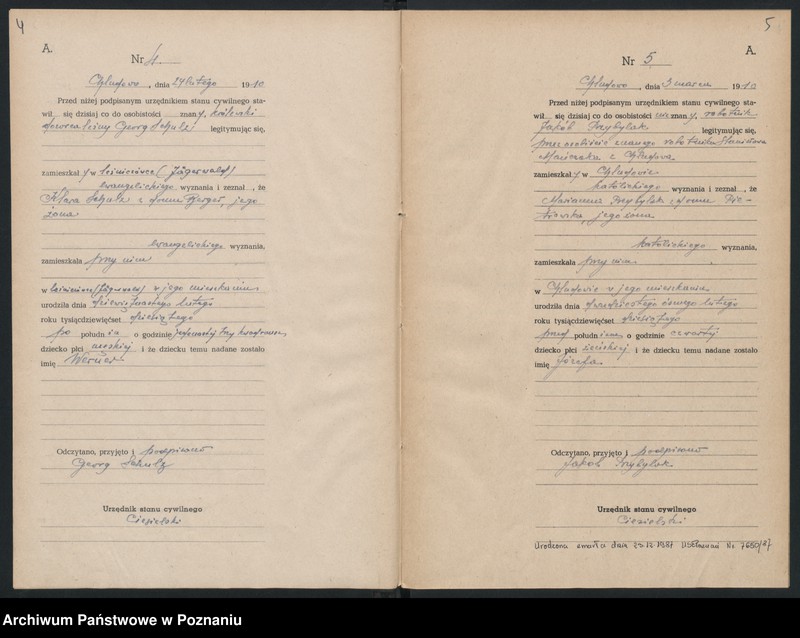 4
A.
Nr 4.
Chludowo, dnia 24 lutego 1910
Przed niżej podpisanym urzędnikiem stanu cywilnego sta-
wił się dzisiaj co do osobistości znany, królewski
Georg Schulz legitymując się,
zamieszkały w leśniczówce (Jägerwald)
ewangelickiego wyznania i zeznał, że
Klara Schulz z domu Berger, jego
żona
ewangelickiego wyznania,
zamieszkała przy nim
w (Jägerwald) w jego mieszkaniu
urodziła dnia dziewiętnastego lutego
roku tysiącdziewięćset dziesiątego
po południu o godzinie
dziecko płci męskiej i że dziecku temu nadane zostało
imię Werner
Odczytano, przyjęto i podpisano
Georg Schulz
Urzędnik stanu cywilnego
Ciesielski
5
A.
Nr 5
Chludowo, dnia 3 marca 1910
Przed niżej podpisanym urzędnikiem stanu cywilnego sta-
wił się dzisiaj co do osobistości nieznany, robotnik
Jakób Przybylak legitymując się,
przez osobiście znanego robotnika Stanisława
z Chludowa
zamieszkały w Chludowie
katolickiego wyznania i zeznał, że
Marianna Przybylak z domu
jego żona
katolickiego wyznania,
zamieszkała przy nim
w Chludowie w jego mieszkaniu
urodziła dnia dwudziestego ósmego lutego
roku tysiącdziewięćset dziesiątego
przed południem o godzinie czwartej
dziecko płci żeńskiej i że dziecku temu nadane zostało
imię Józefa
Odczytano, przyjęto i podpisano
Jakob Przybylak
Urzędnik stanu cywilnego
Ciesielski
Urodzona zmarła dnia 23.12.1987 USC Poznań Nr 7650/87
Archiwum Państwowe w Poznaniu